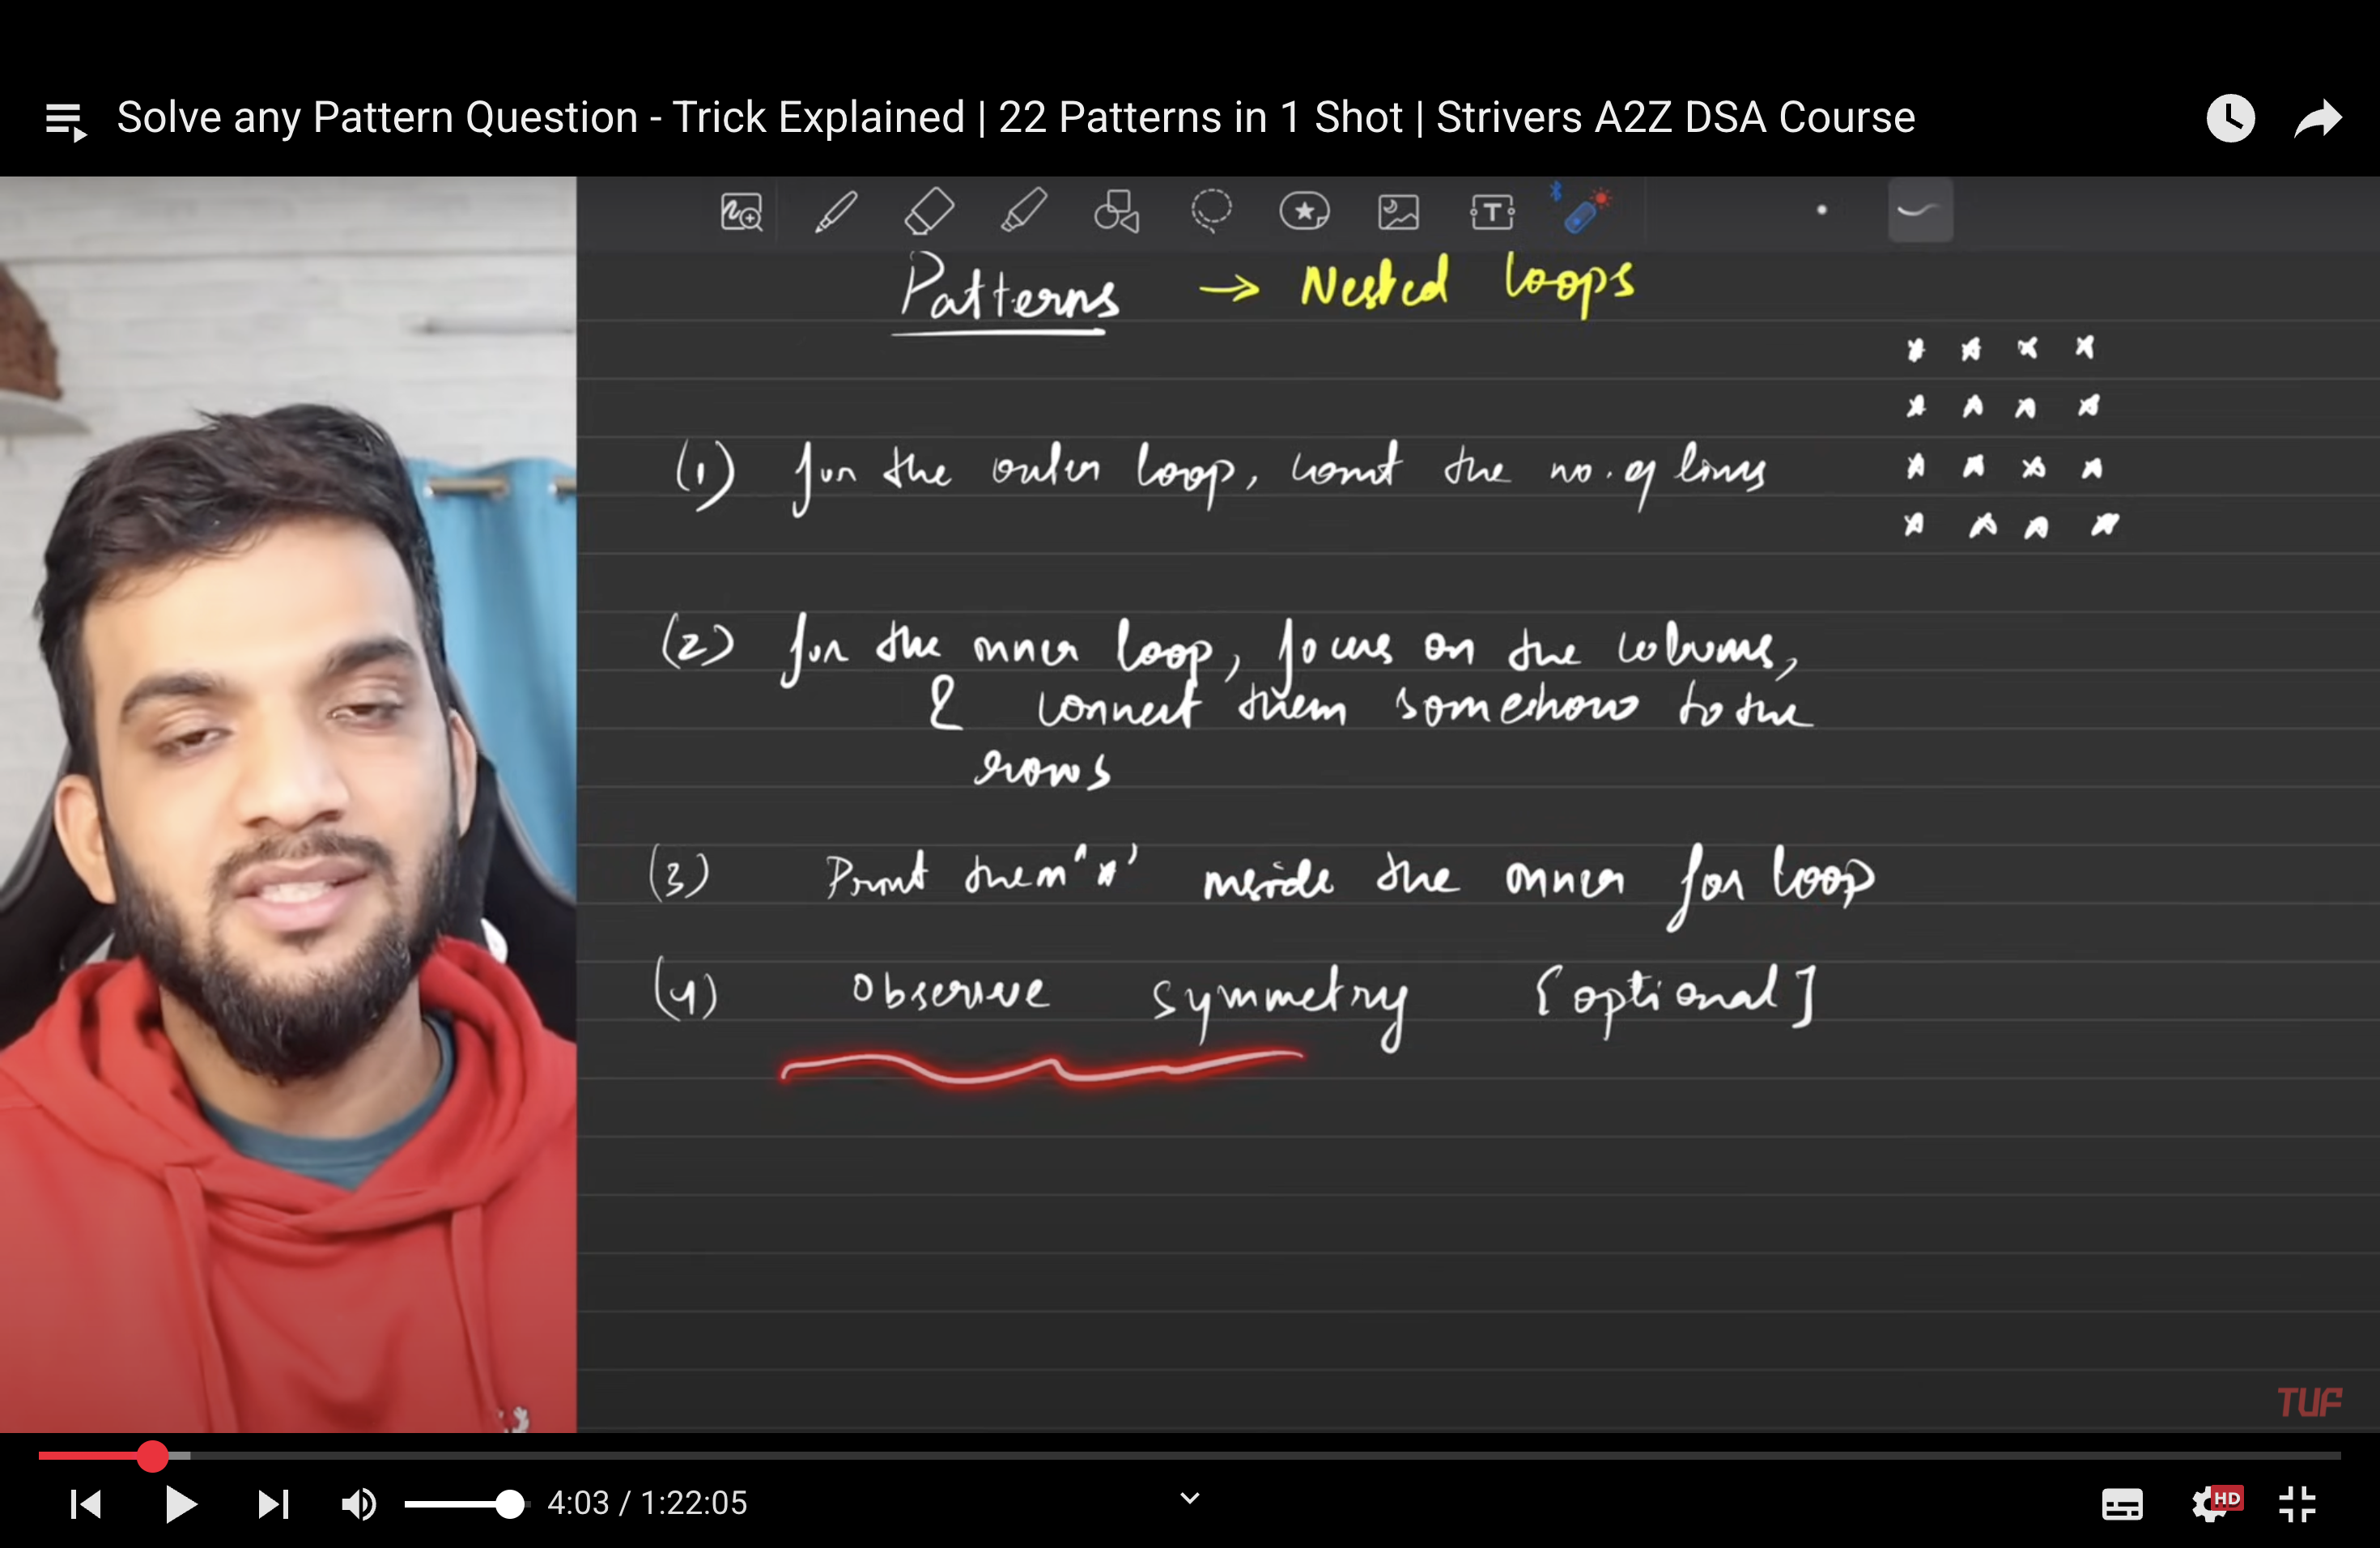 Solve any Pattern Question - Trick Explained | 22 Patterns in 1 Shot | Strivers A2Z DSA Course
Patterns → Nested loops
* * * *
* * * *
(1) for the outer loop, count the no. of lines
* * * *
* * * *
(2) for the inner loop, focus on the columns,
& connect them somehow to the
rows
(3) Print them '*' inside the inner for loop
(4) Observe symmetry [optional]
TUF
4:03 / 1:22:05
HD